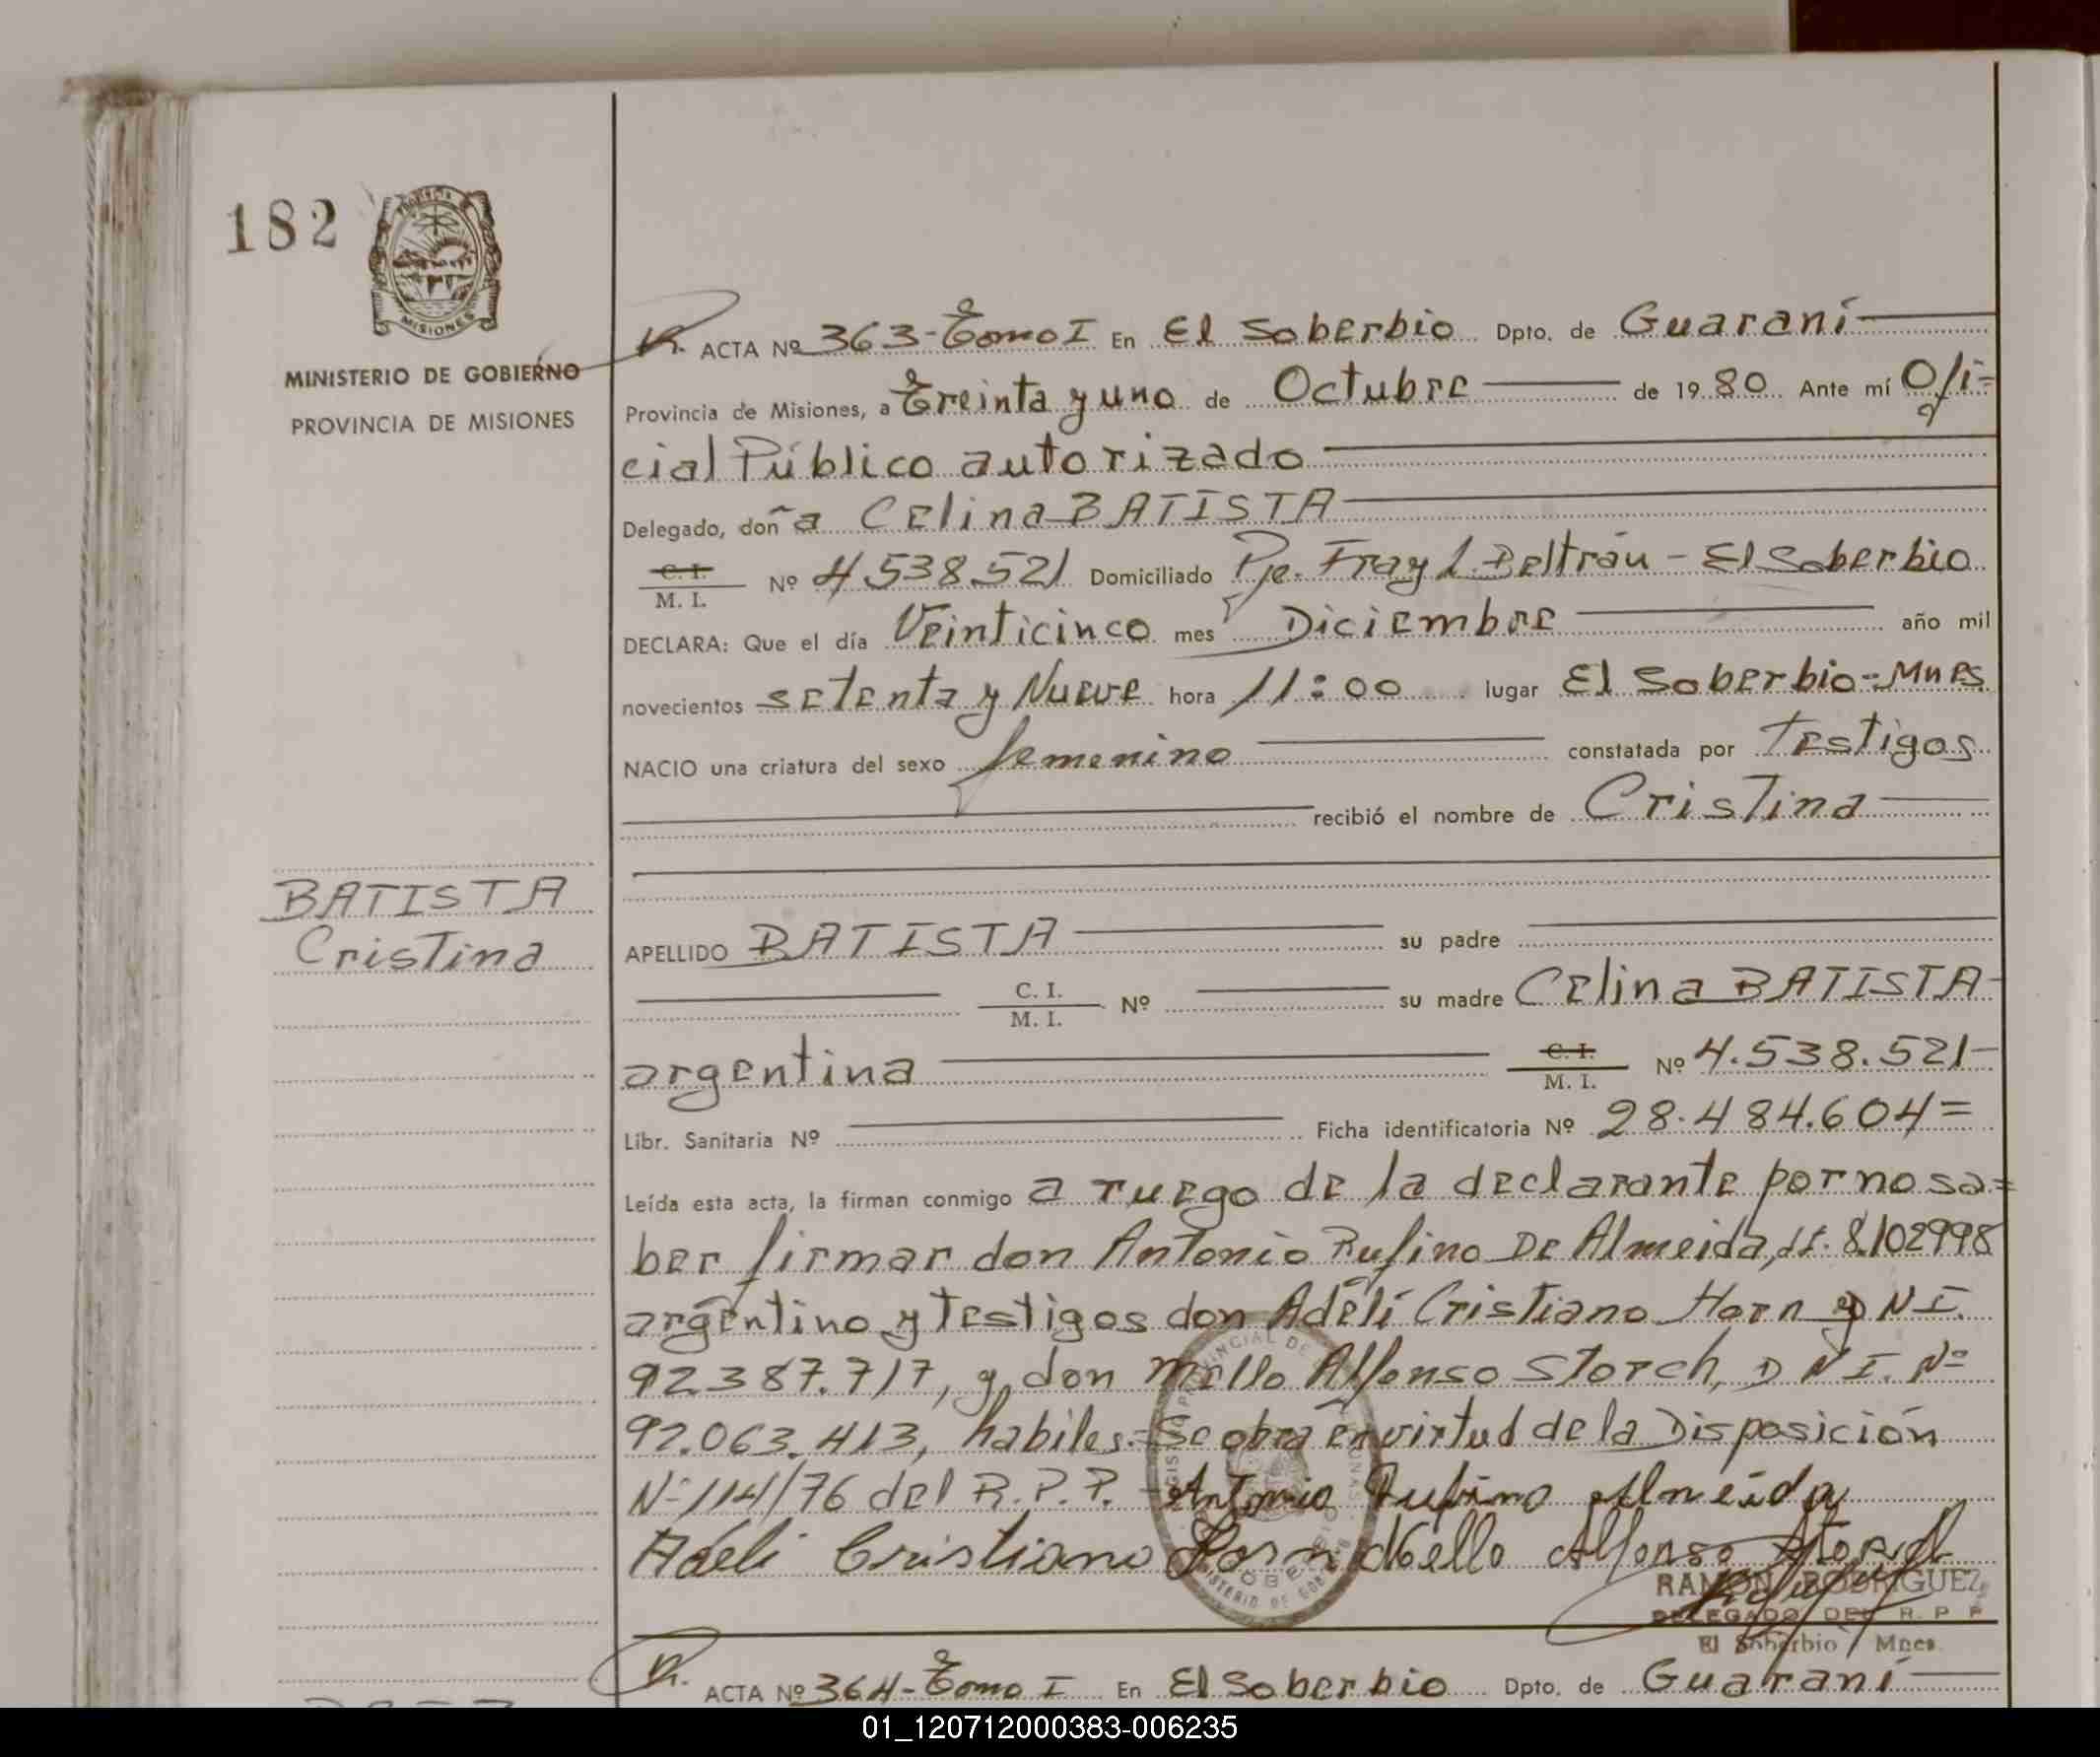 182
MISIONES
MINISTERIO DE GOBIERNO
PROVINCIA DE MISIONES
ACTA Nº 363-Tomo I En El Soberbio Dpto. de Guaraní
Provincia de Misiones, a Treinta y uno de Octubre de 19 80 Ante mí Ofi=
cial Público autorizado
Delegado, doña Celina BATISTA
C. I.
M. I. Nº 4.538.521 Domiciliado Pje. Fray L. Beltrán - El Soberbio
DECLARA: Que el día Veinticinco mes Diciembre año mil
novecientos setenta y Nueve hora 11:00 lugar El Soberbio-Mnes
NACIO una criatura del sexo femenino constatada por Testigos
recibió el nombre de Cristina
BATISTA
Cristina
APELLIDO BATISTA su padre
C. I.
M. I. Nº su madre Celina BATISTA
argentina C. I.
M. I. Nº 4.538.521-
Libr. Sanitaria Nº Ficha identificatoria Nº 28.484.604=
Leída esta acta, la firman conmigo a ruego de la declarante por no sa=
ber firmar don Antonio Rufino De Almeida, 8.102998
argentino y Testigos don Adelí Cristiano Horn D N I.
92.387.717, y don Mello Alfonso Storch, D N I. Nº
92.063.413, habiles.= Se obra en virtud de la Disposición
Nº 114/76 del R.P.P. Antonio Rufino Almeida
Adeli Cristiano Horn Mello Alfonso Storch
RAMON RODRIGUEZ
DELEGADO DEL R. P. P.
El Soberbio Mnes.
ACTA Nº 364-Tomo I En El Soberbio Dpto. de Guaraní
01_120712000383-006235